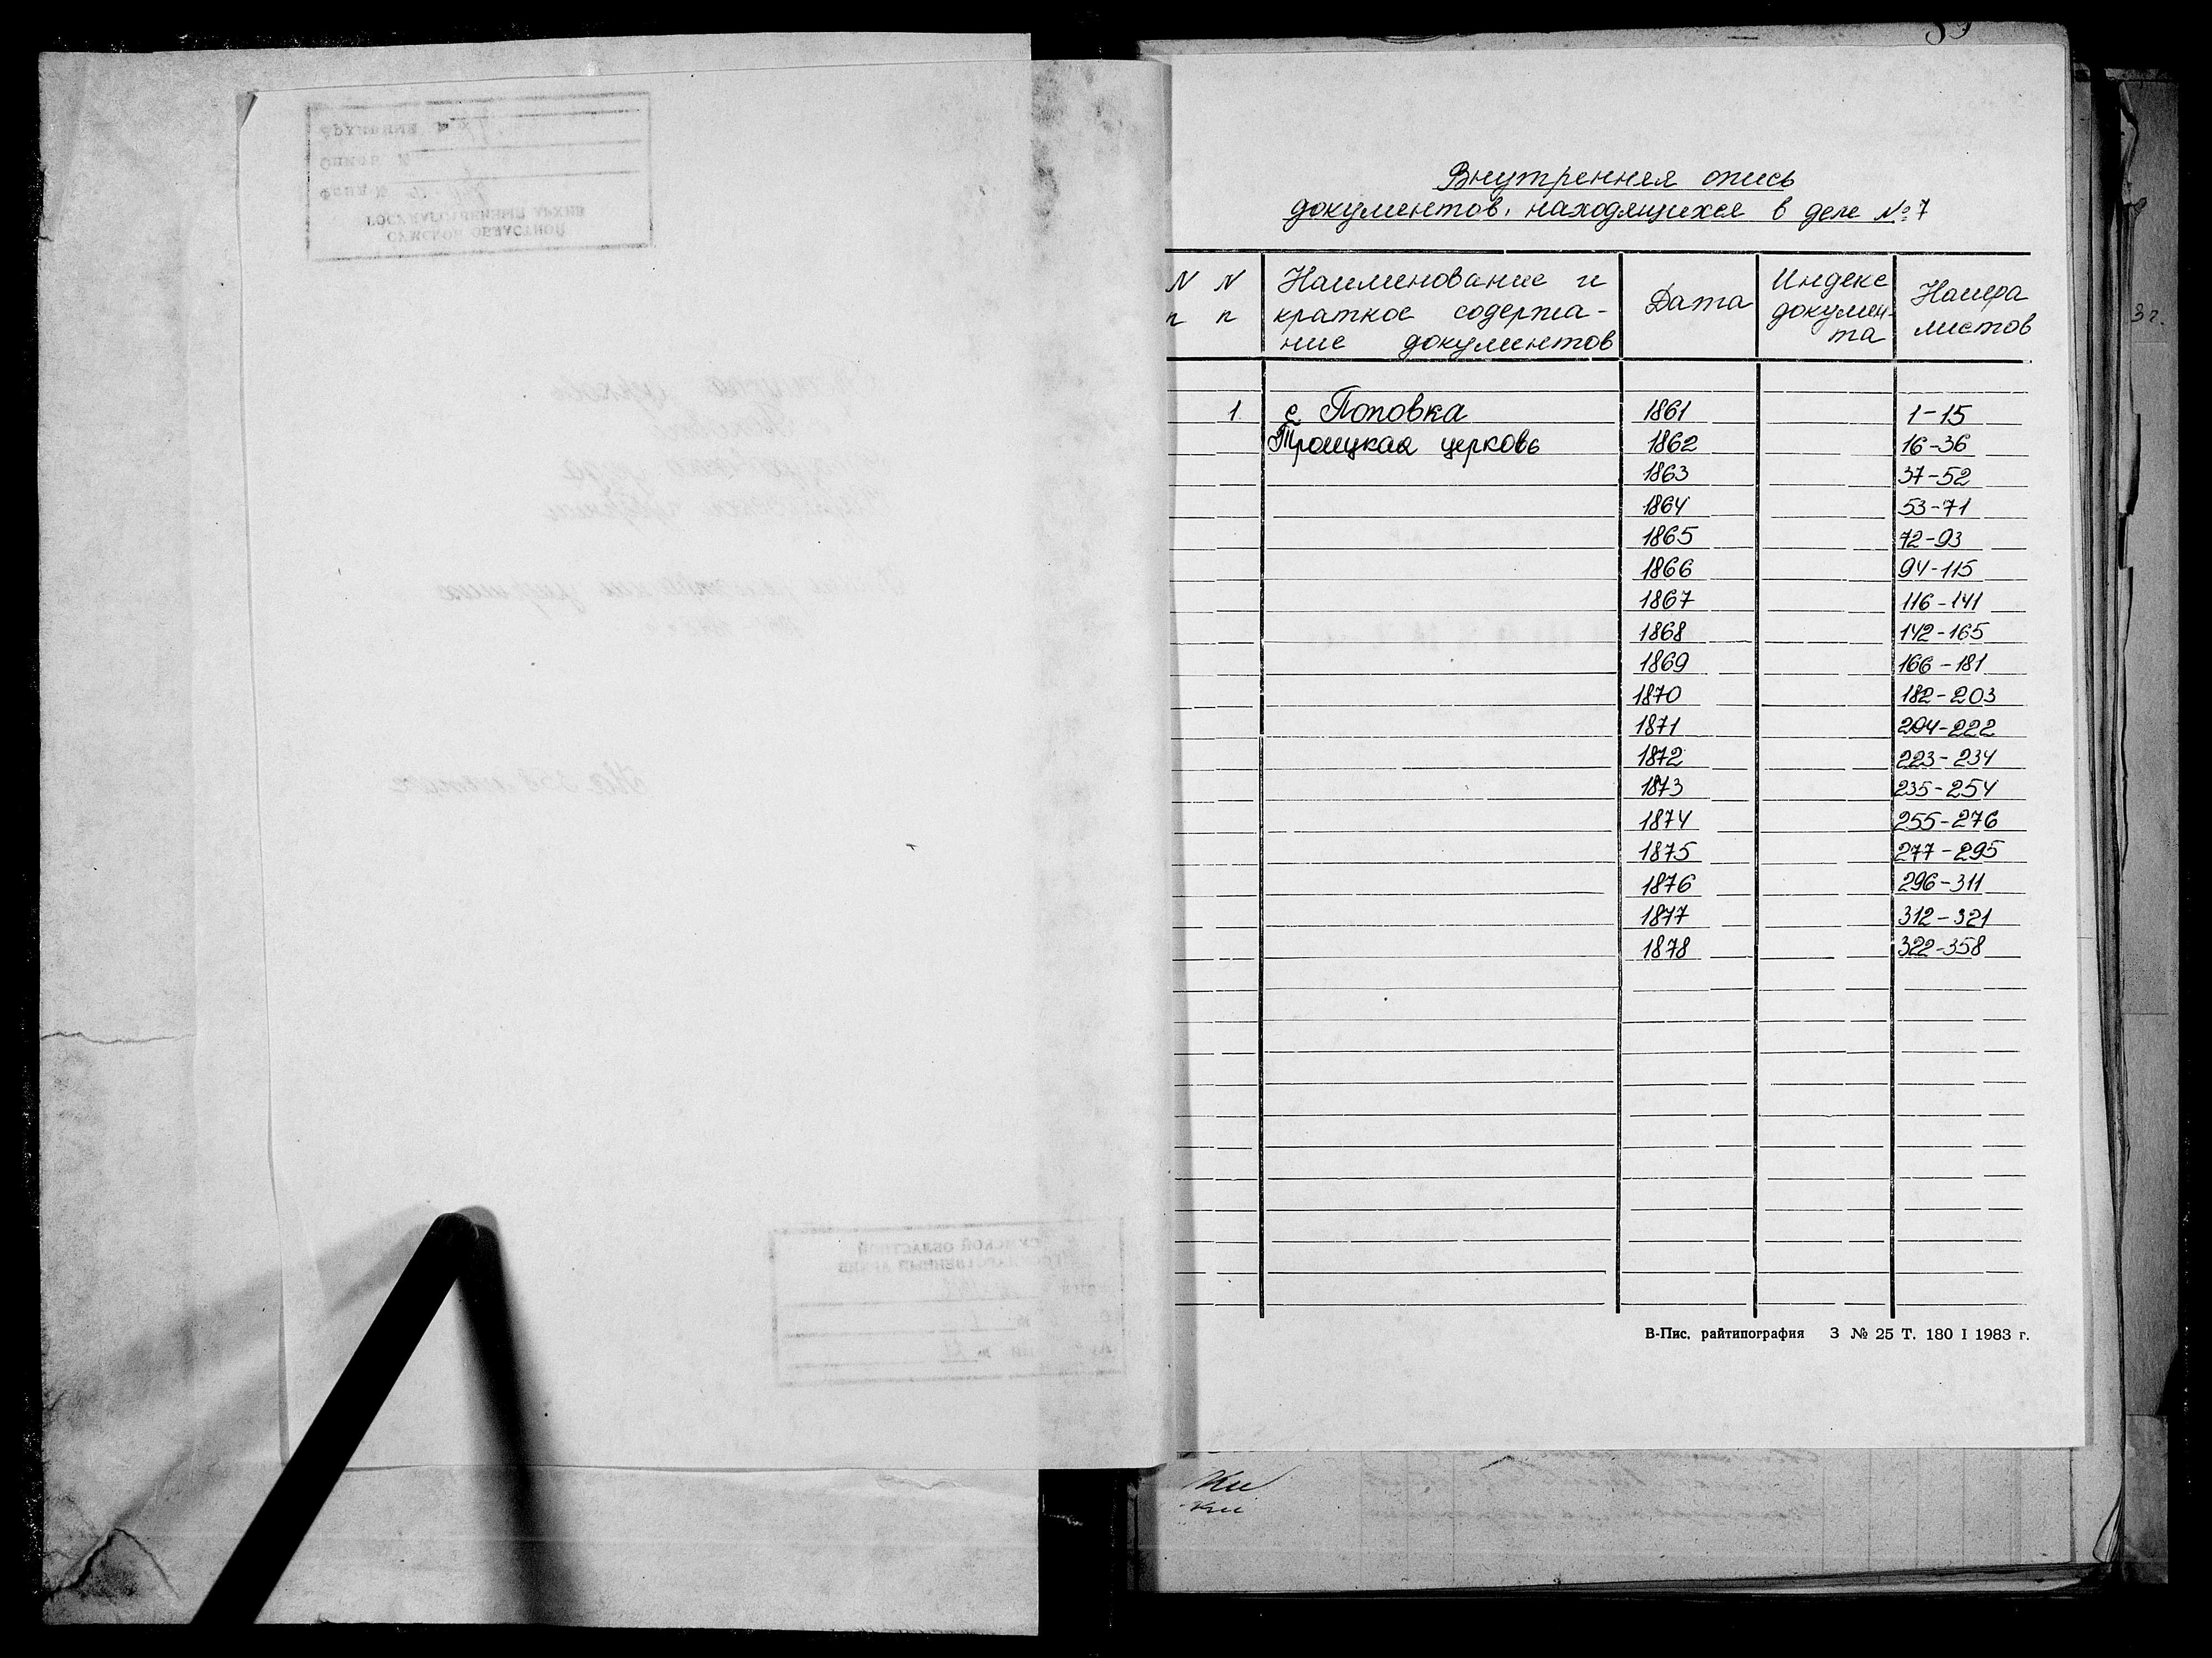 Внутренняя опись
документов, находящихся в деле № 7
N N Наименование и Дата Индекс Номера
п п краткое содержа- докумен- листов
ние документов та
1. с. Поповка 1861 1-15
Троицкая церковь 1862 16-36
1863 37-52
1864 53-71
1865 72-93
1866 94-115
1867 116-141
1868 142-165
1869 166-181
1870 182-203
1871 204-222
1872 223-234
1873 235-254
1874 255-276
1875 277-295
1876 296-311
1877 312-321
1878 322-358
В-Пис. райтипография З № 25 Т. 180 I 1983 г.
СУМСКОЙ ОБЛАСТНОЙ
ГОСУДАРСТВЕННЫЙ АРХИВ
Фонд №
Опись №